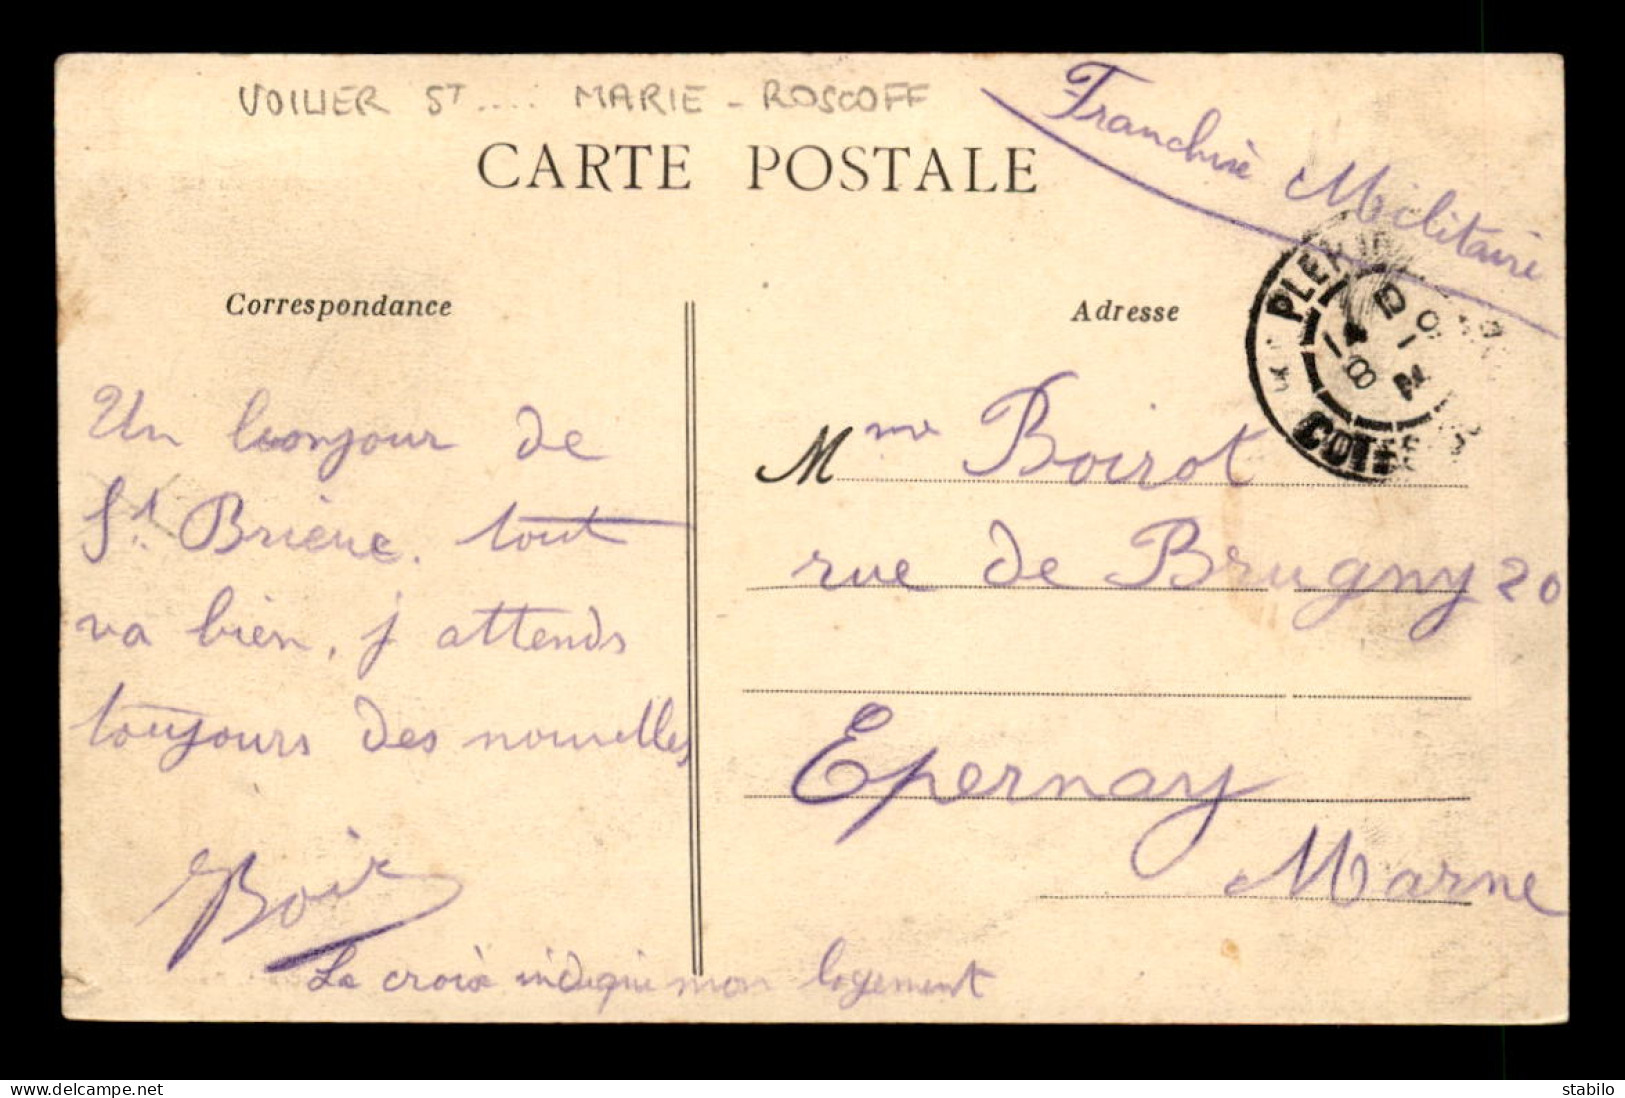 VOILIER ST .... MARIE - ROSCOFF
CARTE POSTALE
Franchise Militaire
Correspondance
Adresse
Un bonjour de
St. Brieuc. tout
va bien, j attends
toujours des nouvelles
Boir
La croix indique mon logement
Mme Boirot
rue de Brugny 20
Epernay
Marne
PLERIN
COTES
delcampe.net
stabilo